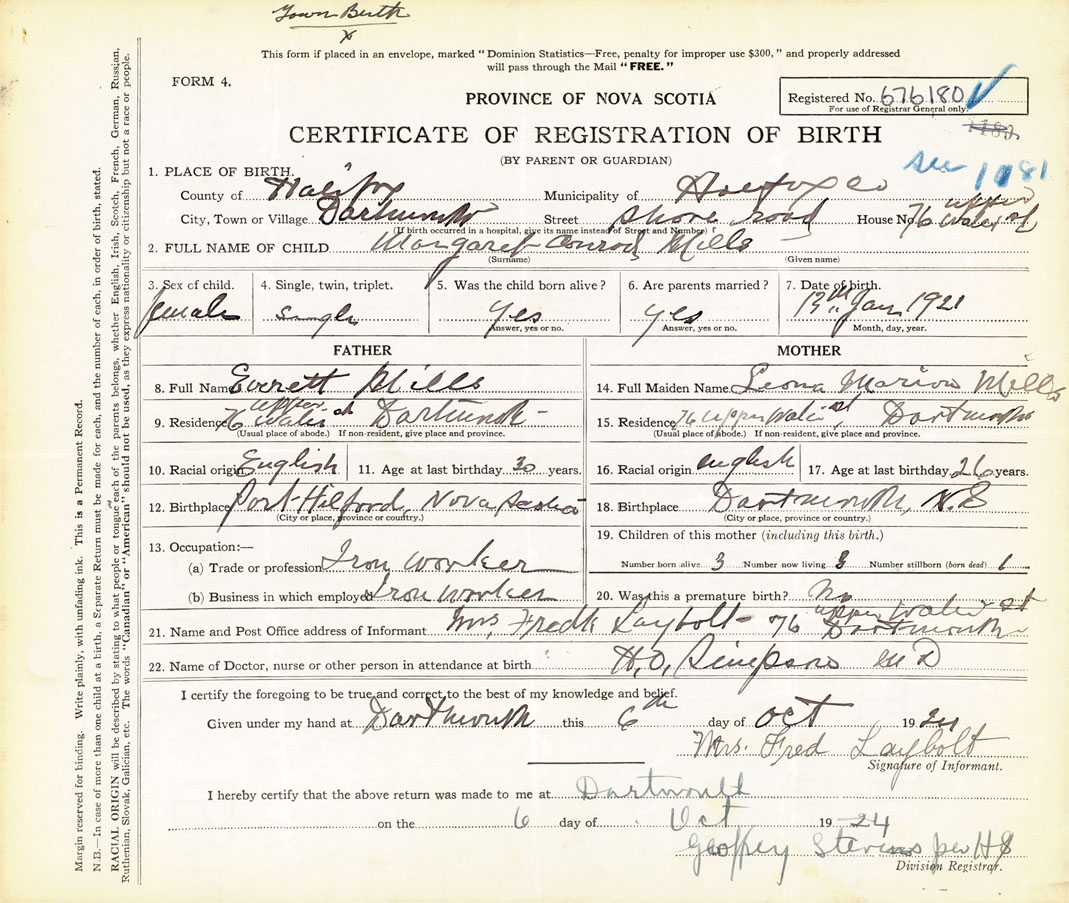 Town Birth
x
This form if placed in an envelope, marked "Dominion Statistics—Free, penalty for improper use $300," and properly addressed
will pass through the Mail "FREE."
FORM 4.
Registered No. 676180 ✓
For use of Registrar General only.
PROVINCE OF NOVA SCOTIA
CERTIFICATE OF REGISTRATION OF BIRTH
(BY PARENT OR GUARDIAN)
see 1081
1. PLACE OF BIRTH.
County of Halifax Municipality of Halifax Co
City, Town or Village Dartmouth Street Shore road House No. 76 upper Water St
(If birth occurred in a hospital, give its name instead of Street and Number)
2. FULL NAME OF CHILD Margaret Conrod Mills
(Surname) (Given name)
3. Sex of child. 4. Single, twin, triplet. 5. Was the child born alive? 6. Are parents married? 7. Date of birth.
female single yes yes 13th Jany 1921
Answer, yes or no. Answer, yes or no. Month, day, year.
FATHER MOTHER
8. Full Name Everett Mills 14. Full Maiden Name Leona Marion Mills
9. Residence 76 upper Water st Dartmouth 15. Residence 76 upper Water st, Dartmouth
(Usual place of abode.) If non-resident, give place and province. (Usual place of abode.) If non-resident, give place and province.
10. Racial origin English 11. Age at last birthday 30 years. 16. Racial origin english 17. Age at last birthday 26 years.
12. Birthplace Port Hilford, Nova Scotia 18. Birthplace Dartmouth, N.S
(City or place, province or country.) (City or place, province or country.)
13. Occupation:— 19. Children of this mother (including this birth.)
(a) Trade or profession Iron worker Number born alive 3 Number now living 3 Number stillborn (born dead) 1
(b) Business in which employed Iron worker 20. Was this a premature birth? No
21. Name and Post Office address of Informant Mrs, Fredk Laybolt - 76 upper Water St Dartmouth
22. Name of Doctor, nurse or other person in attendance at birth H.O. Simpson M D
I certify the foregoing to be true and correct to the best of my knowledge and belief.
Given under my hand at Dartmouth this 6th day of Oct 1924
Mrs. Fred Laybolt
Signature of Informant.
I hereby certify that the above return was made to me at Dartmouth
on the 6 day of Oct 19 24
Geoffrey Stevens per HS
Division Registrar.
Margin reserved for binding. Write plainly, with unfading ink. This is a Permanent Record.
N.B.—In case of more than one child at a birth, a Separate Return must be made for each, and the number of each, in order of birth, stated.
RACIAL ORIGIN will be described by stating to what people or tongue each of the parents belongs, whether English, Irish, Scotch, French, German, Russian,
Ruthenian, Slovak, Galician, etc. The words "Canadian" or "American" should not be used, as they express nationality or citizenship but not a race or people.